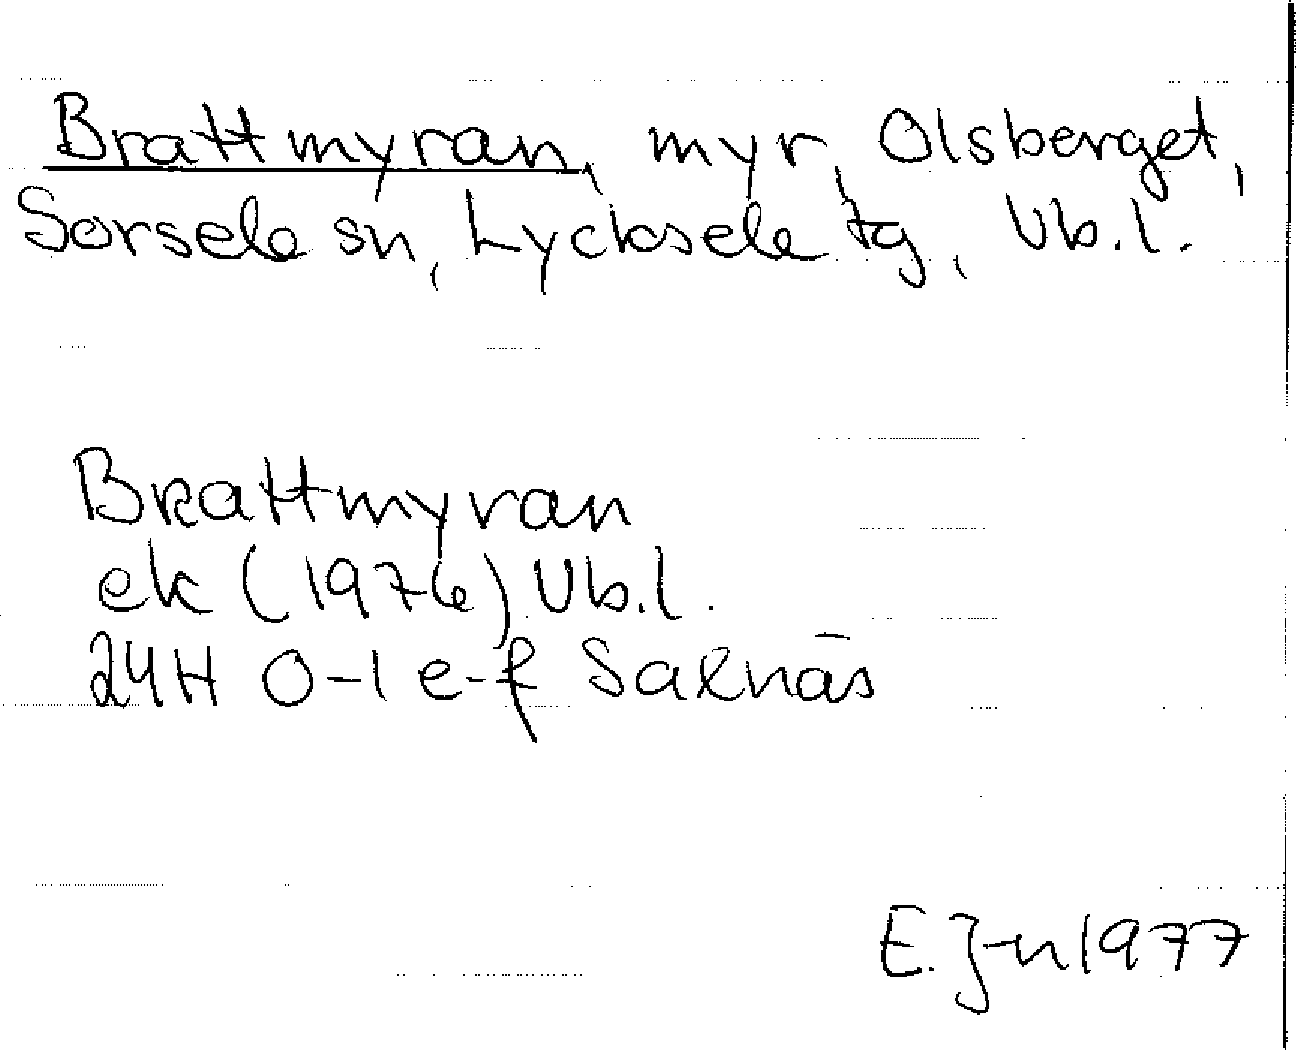 Brattmyran, myr, Olsberget,
Sorsele sn, Lycksele tg, Vb.l.
Brattmyran
ek (1976) Vb.l.
24H 0-1 e-f Saxnäs
E. J-n 1977